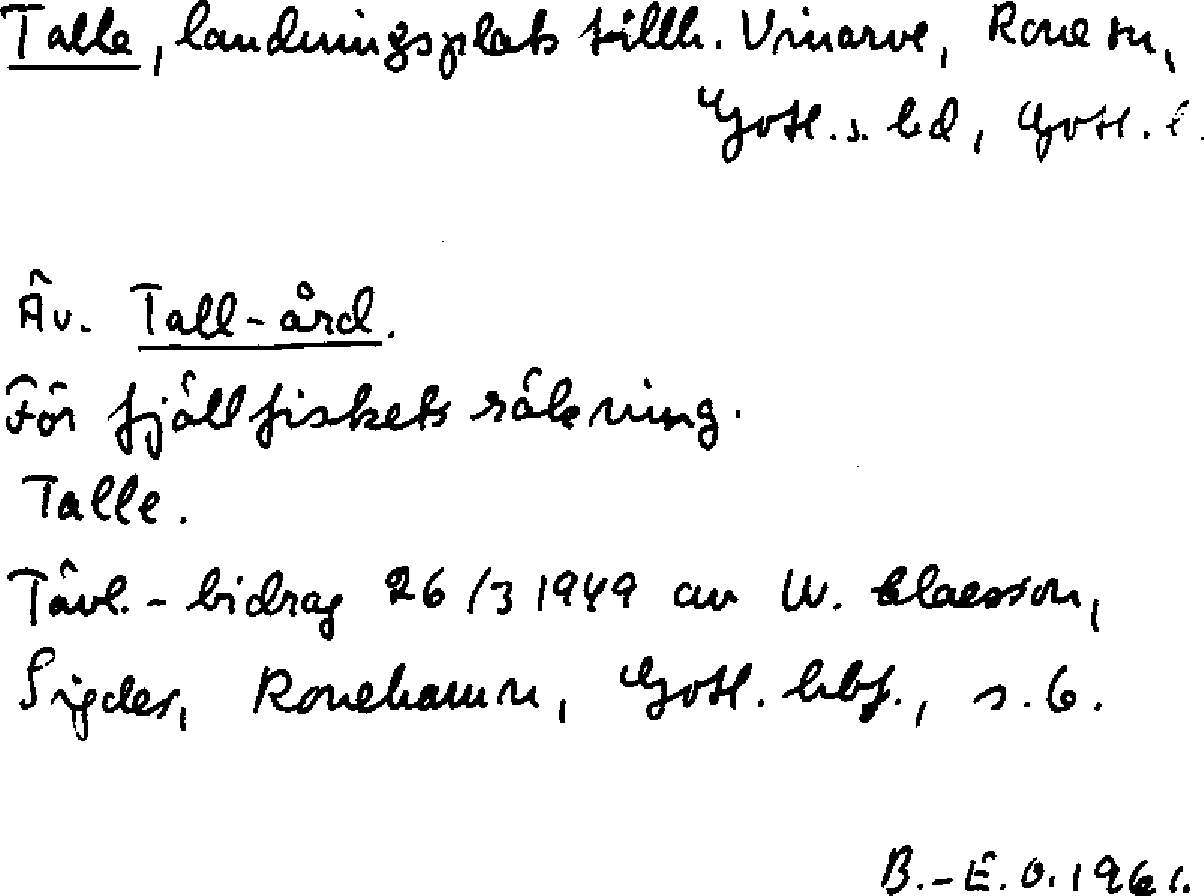 Talle, landningsplats tillh. Vinarve, Rone sn,
Gotl. s. hd, Gotl. l.
Äv. Tall-ård.
För fjällfiskets räkning.
Talle.
Tävl.-bidrag 26/3 1949 av W. Claesson,
Sigdes, Ronehamn, Gotl. hbf., s. 6.
B.-E. O. 1961.